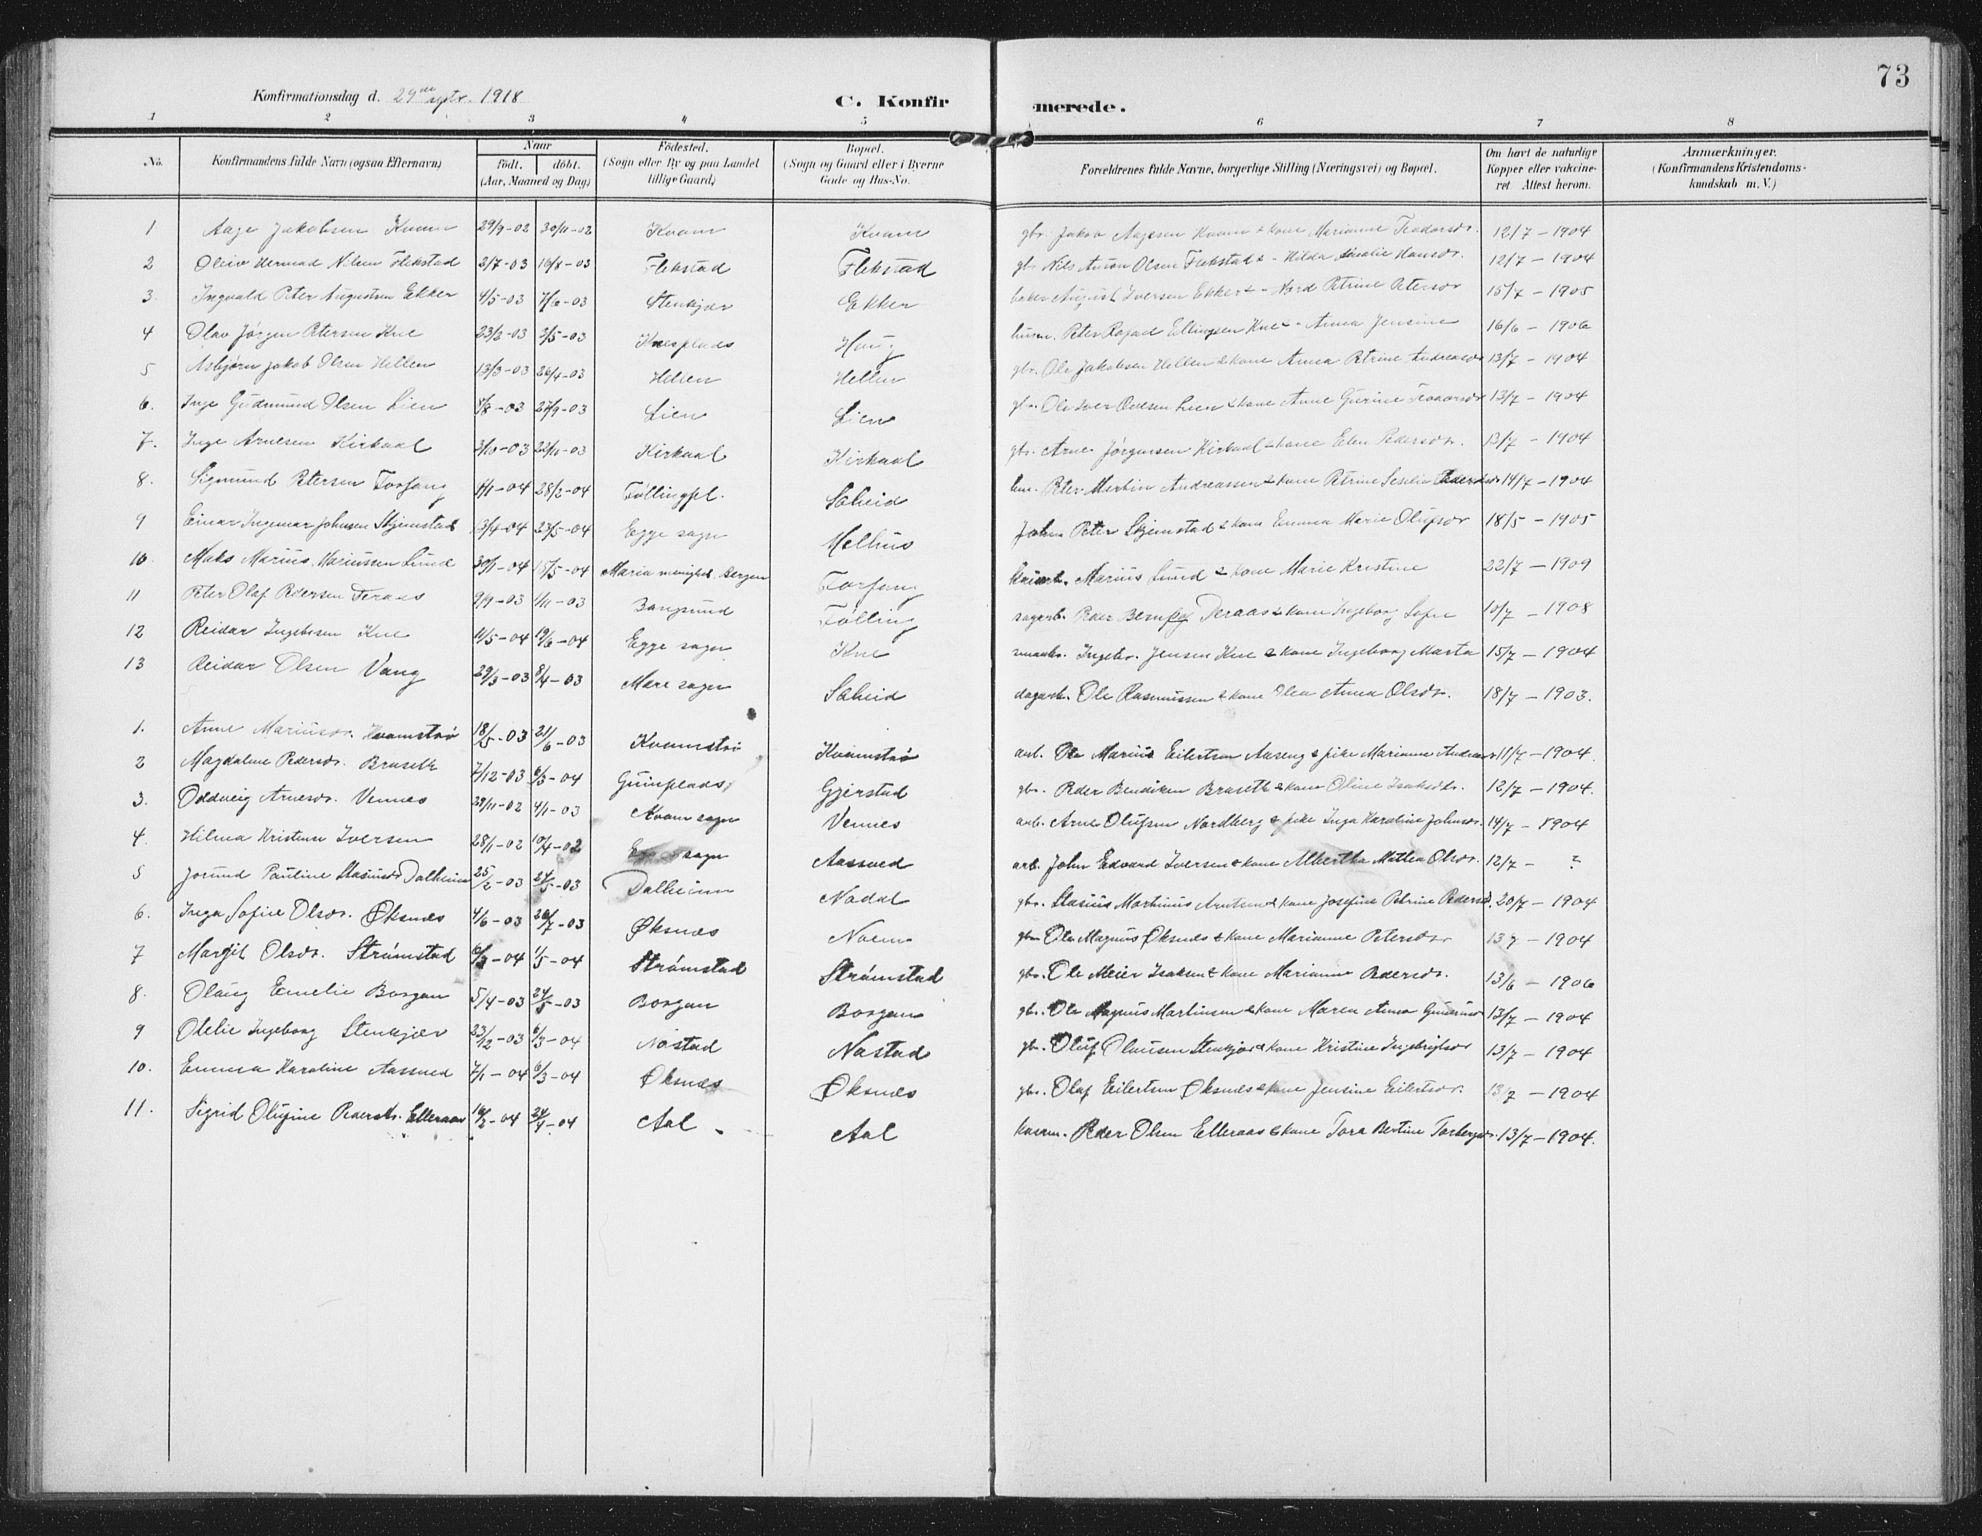 73
Konfirmationsdag d. 29de septr. 1918
C. Konfirmerede.
1 2 3 4 5 6 7 8
No. Konfirmandens fulde Navn (ogsaa Efternavn) Naar födt. döbt. (Aar, Maaned og Dag) Födested. (Sogn eller By og paa Landet tillige Gaard) Bopæl. (Sogn og Gaard eller i Byerne Gade og Hus-No. Forældrenes fulde Navne, borgerlige Stilling (Næringsvei) og Bopæl. Om havt de naturlige Kopper eller vakcineret. Attest herom. Anmærkninger. (Konfirmandens Kristendomskundskab m. V.)
1 Aage Jakobsen Kvam 29/9-02 30/11-02 Kvam Kvam gbr. Jakob Aagesen Kvam & kone Marianne Teodorsdr. 12/7-1904
2 Oleiv Hermod Nilsen Flekstad 2/7-03 16/8-03 Flekstad Flekstad gbr. Nils Anton Olsen Flekstad & - Hilda Hansdr. 12/7-1904
3. Ingvald Peter Augustsen Ekker 4/5-03 7/6-03 Stenkjær Ekker baker August Iversen Ekker & - Petrine Petersdr 15/7-1905
4 Olav Jørgen Petersen Kne 23/2-03 3/5-03 Knesplads Haug husm. Peter Ellingsen Kne & - Anna Jensine 16/6-1906
5 Asbjørn Jakob Olsen Hellem 13/3-03 26/4-03 Hellem Hellem gbr. Ole Jakobsen Hellem & kone Anna Petrine Andreasdr 13/7-1904
6. Inge Gudmund Olsen Lien 8/8-03 27/9-03 Lien Lien gbr. Ole Iver Lien & kone Anne Gurine Teodorsdr 13/7-1904
7. Inge Arnesen Kirkaal 3/10-03 22/11-03 Kirkaal Kirkaal gbr. Arne Jørgensen Kirkaal & kone Elen Pedersdr. 13/7-1904
8. Sigmund Petersen Forfang 4/1-04 28/2-04 Føllingpl. Sæheid Peter Martin Andreassen & kone Petrine Seselie Pedersdr 14/7-1904
9 Einar Ingemar Johnsen Skjemstad 13/4-04 23/5-04 Egge sogn Melhus John Peter Skjemstad & kone Emma Marie Olufsdr 18/5-1905
10 Maks Marius Mariussen Lund 30/1-04 15/5-04 Maria menighed. Bergen Forfang Marius Lund & kone Marie Kristine 22/7-1909
11 Peter Olaf Pedersen Feraas 9/9-03 1/11-03 Bangsund Følling sagarb. Peder Feraas & kone Ingeborg Sofie 10/7-1908
12 Reidar Ingebrsen Kne 11/5-04 19/6-04 Egge sogn Kne Ingebr. Jensen Kne & kone Ingeborg Marta 15/7-1904
13 Reidar Olsen Vang 29/3-03 8/4-03 Mære sogn Sæheid dagarb. Ole Rasmussen & kone Olea Anna Olsdr. 18/7-1903.
1. Anne Mariusdr. Kvamstrø 18/5-03 21/6-03 Kvamstrø Kvamstrø arb. Ole Marius Eilertsen Aaseng & pike Marianne Andreasdr 11/7-1904
2 Magdalene Pedersdr. Braseth 7/12-03 6/3-04 Gjerstad gbr. Peder Bendiksen Braseth & kone Oline Isaksdr. 12/7-1904.
3. Oddveig Arnesdr. Vennes 28/11-02 4/1-03 Kvam sogn Vennes arb. Arne Olufsen Nordberg & pike Inga Karoline Johnsdr. 14/7-1904
4. Hilma Kristine Iversen 28/1-02 10/4-02 sogn Aasved arb. John Edvard Iversen & kone Albertha Mathea Olsdr. 12/7-?
5 Jorund Pauline Stasiusdr Dalheim 25/2-03 24/5-03 Dalheim Nødal gbr. Stasius Martinus Arntsen & kone Josefine Petrine Pedersd. 20/7-1904
6. Inga Sofie Olsdr. Øksnes 4/6-03 26/7-03 Øksnes Noem gbr. Ole Magnus Øksnes & kone Marianne Petersdr 13/7-1904
7 Margit Olsdr. Strømstad 6/3-04 1/5-04 Strømstad Strømstad gbr. Ole Meier Isaksen & kone Marianne Pedersdr. 13/6-1906
8. Olaug Emelie Borgan 5/4-03 24/5-03 Borgan Borgan gbr. Ole Magnus Martinsen & kone Maren Anna 13/7-1904
9 Otelie Ingeborg Stenkjær 23/12-03 6/3-04 Nøstad Nøstad gbr. Oluf Olausen Stenkjær & kone Kristine Ingebrigtsdr 13/7-1904
10. Emma Karoline Aassved 7/1-04 6/3-04 Øksnes Øksnes gbr. Olaf Eilertsen Øksnes & kone Jensine Eilertsdr. 13/7-1904
11. Sigrid Olufine Pedersdr. Elleraas 16/2-04 24/4-04 Aal Aal Peder Olsen Elleraas & kone Tora Bertine Torbergsdr. 13/7-1904.